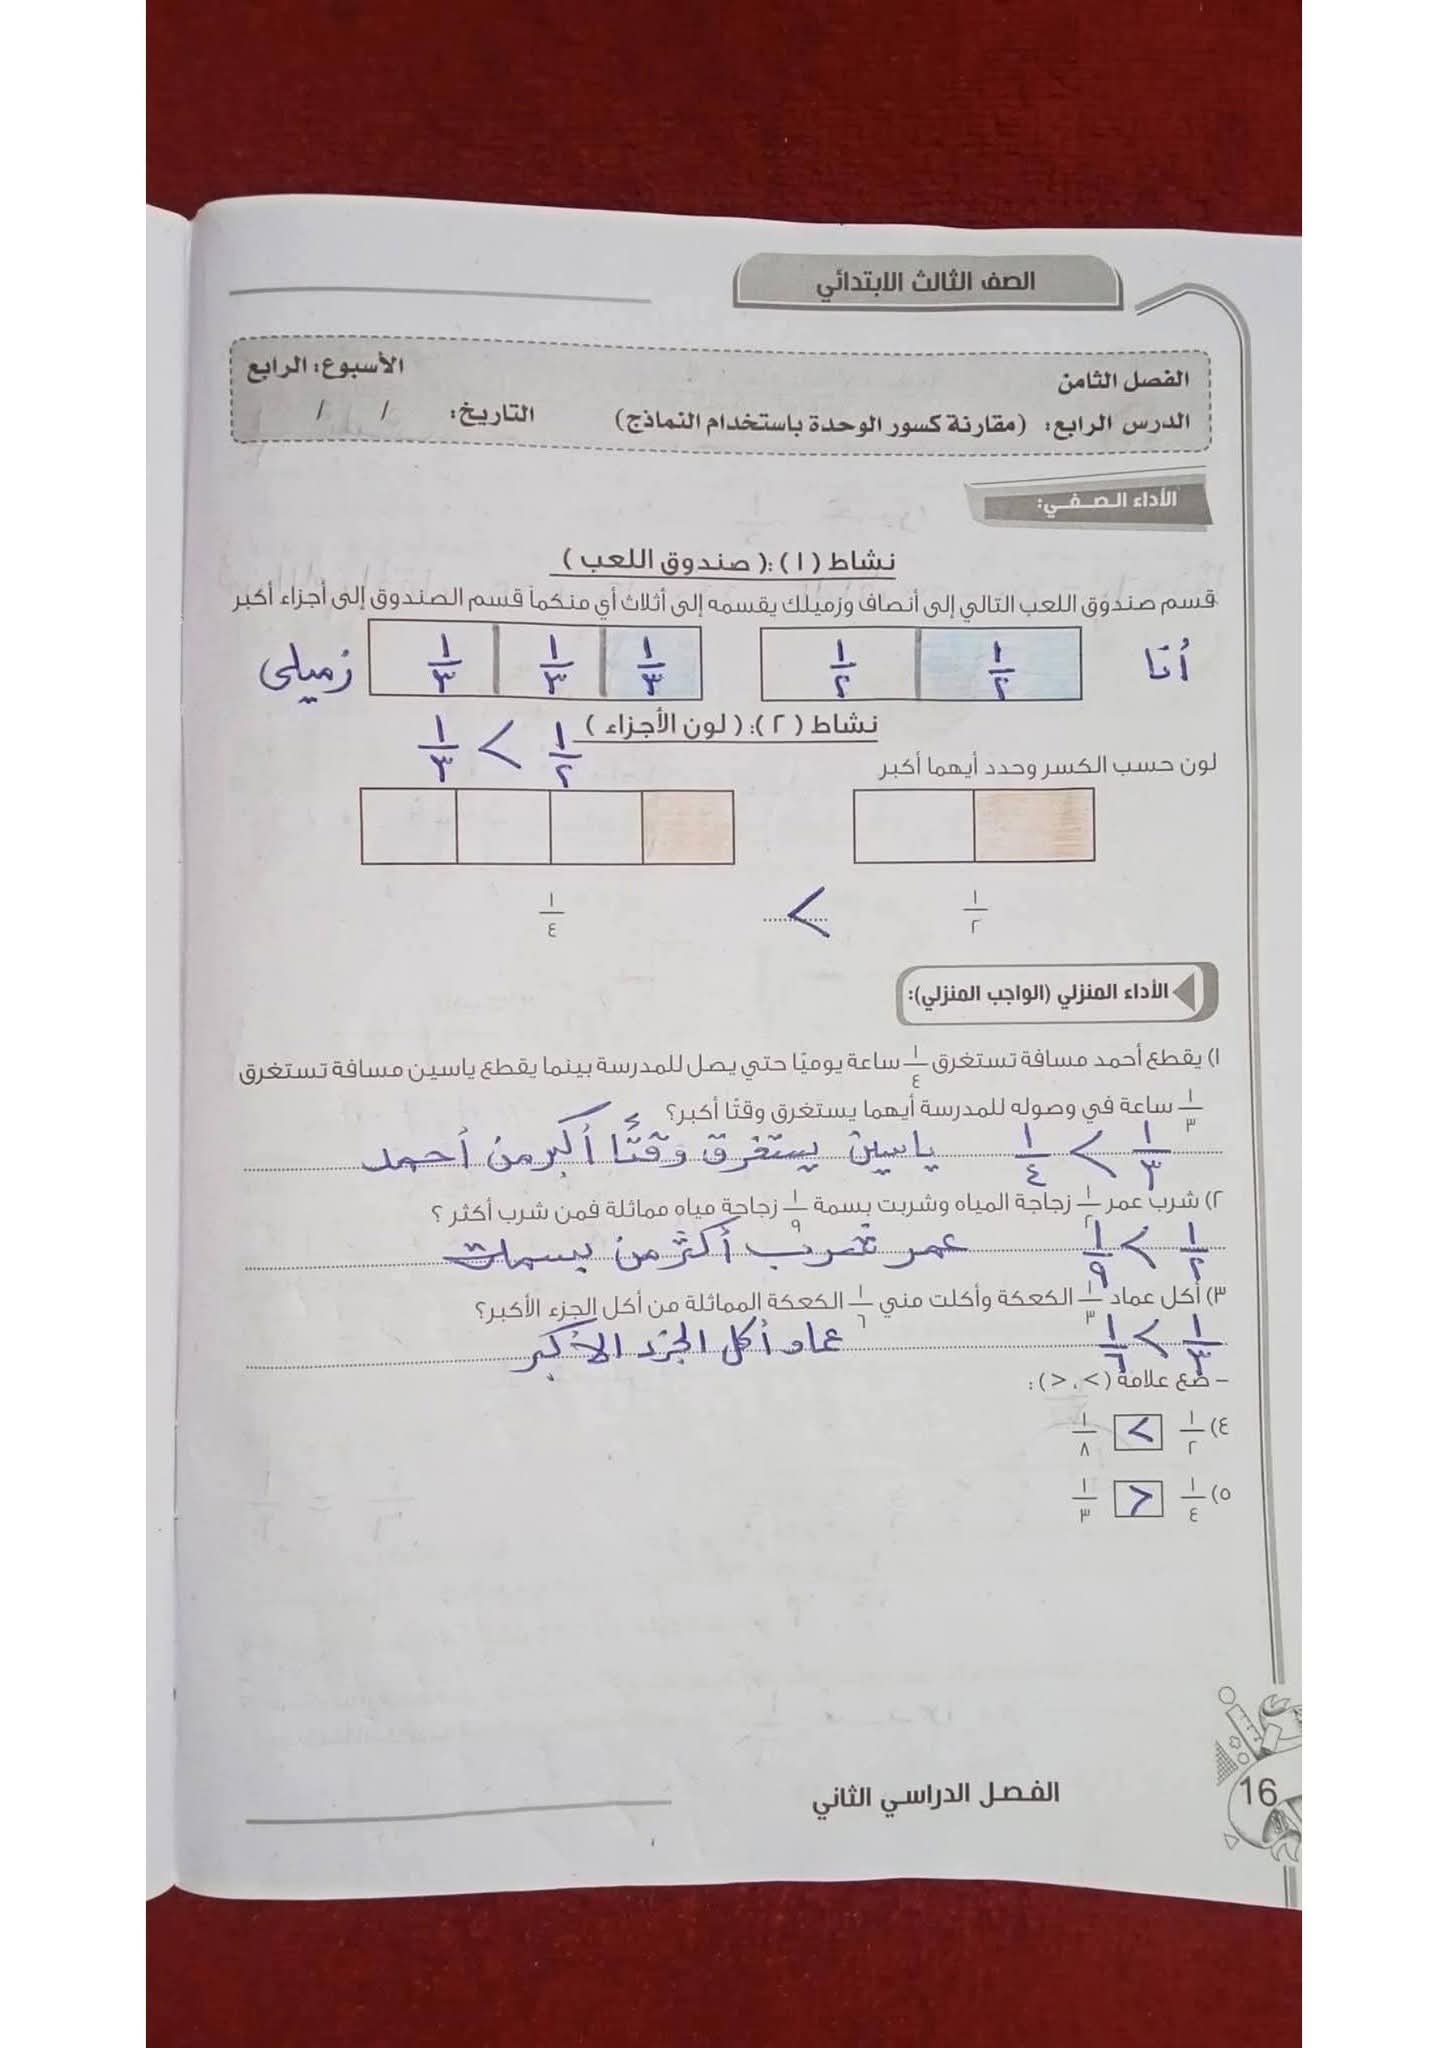 الصف الثالث الابتدائي
الفصل الثامن
الأسبوع: الرابع
الدرس الرابع: (مقارنة كسور الوحدة باستخدام النماذج)
التاريخ: / /
الأداء الصفي:
نشاط (١): (صندوق اللعب)
قسم صندوق اللعب التالي إلى أنصاف وزميلك يقسمه إلى أثلاث أي منكما قسم الصندوق إلى أجزاء أكبر
أنا ١/٢ ١/٢ ١/٣ ١/٣ ١/٣ زميلى
نشاط (٢): (لون الأجزاء)
١/٢ > ١/٣
لون حسب الكسر وحدد أيهما أكبر
١/٢ > ١/٤
الأداء المنزلي (الواجب المنزلي):
١) يقطع أحمد مسافة تستغرق ١/٤ ساعة يوميًا حتي يصل للمدرسة بينما يقطع ياسين مسافة تستغرق
١/٣ ساعة في وصوله للمدرسة أيهما يستغرق وقتًا أكبر؟
١/٣ > ١/٤ ياسين يستغرق وقتًا أكبر من أحمد
٢) شرب عمر ١/٢ زجاجة المياه وشربت بسمة ١/٩ زجاجة مياه مماثلة فمن شرب أكثر ؟
١/٢ > ١/٩ عمر شرب أكثر من
٣) أكل عماد ١/٣ الكعكة وأكلت مني ١/٦ الكعكة المماثلة من أكل الجزء الأكبر؟
١/٣ > ١/٦ عماد أكل الجزء الأكبر
- ضع علامة (<، >):
٤) ١/٢ > ١/٨
٥) ١/٤ < ١/٣
الفصل الدراسي الثاني
16